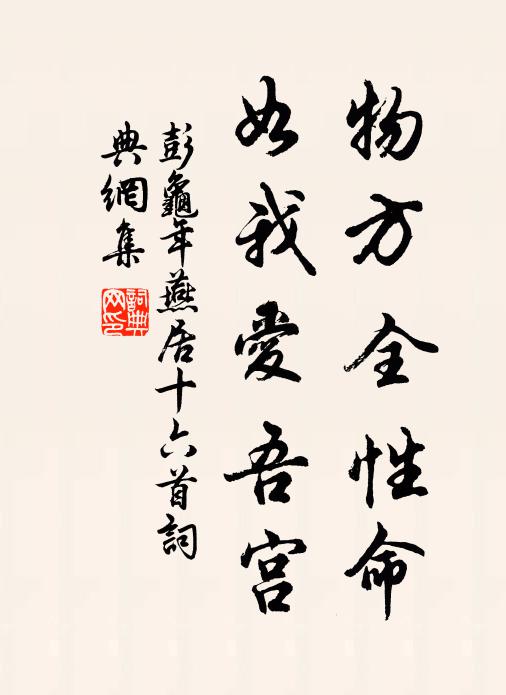 物方全性命
如我愛吾宫
彭龜年燕居十六首詞
典網集
詞典
网印